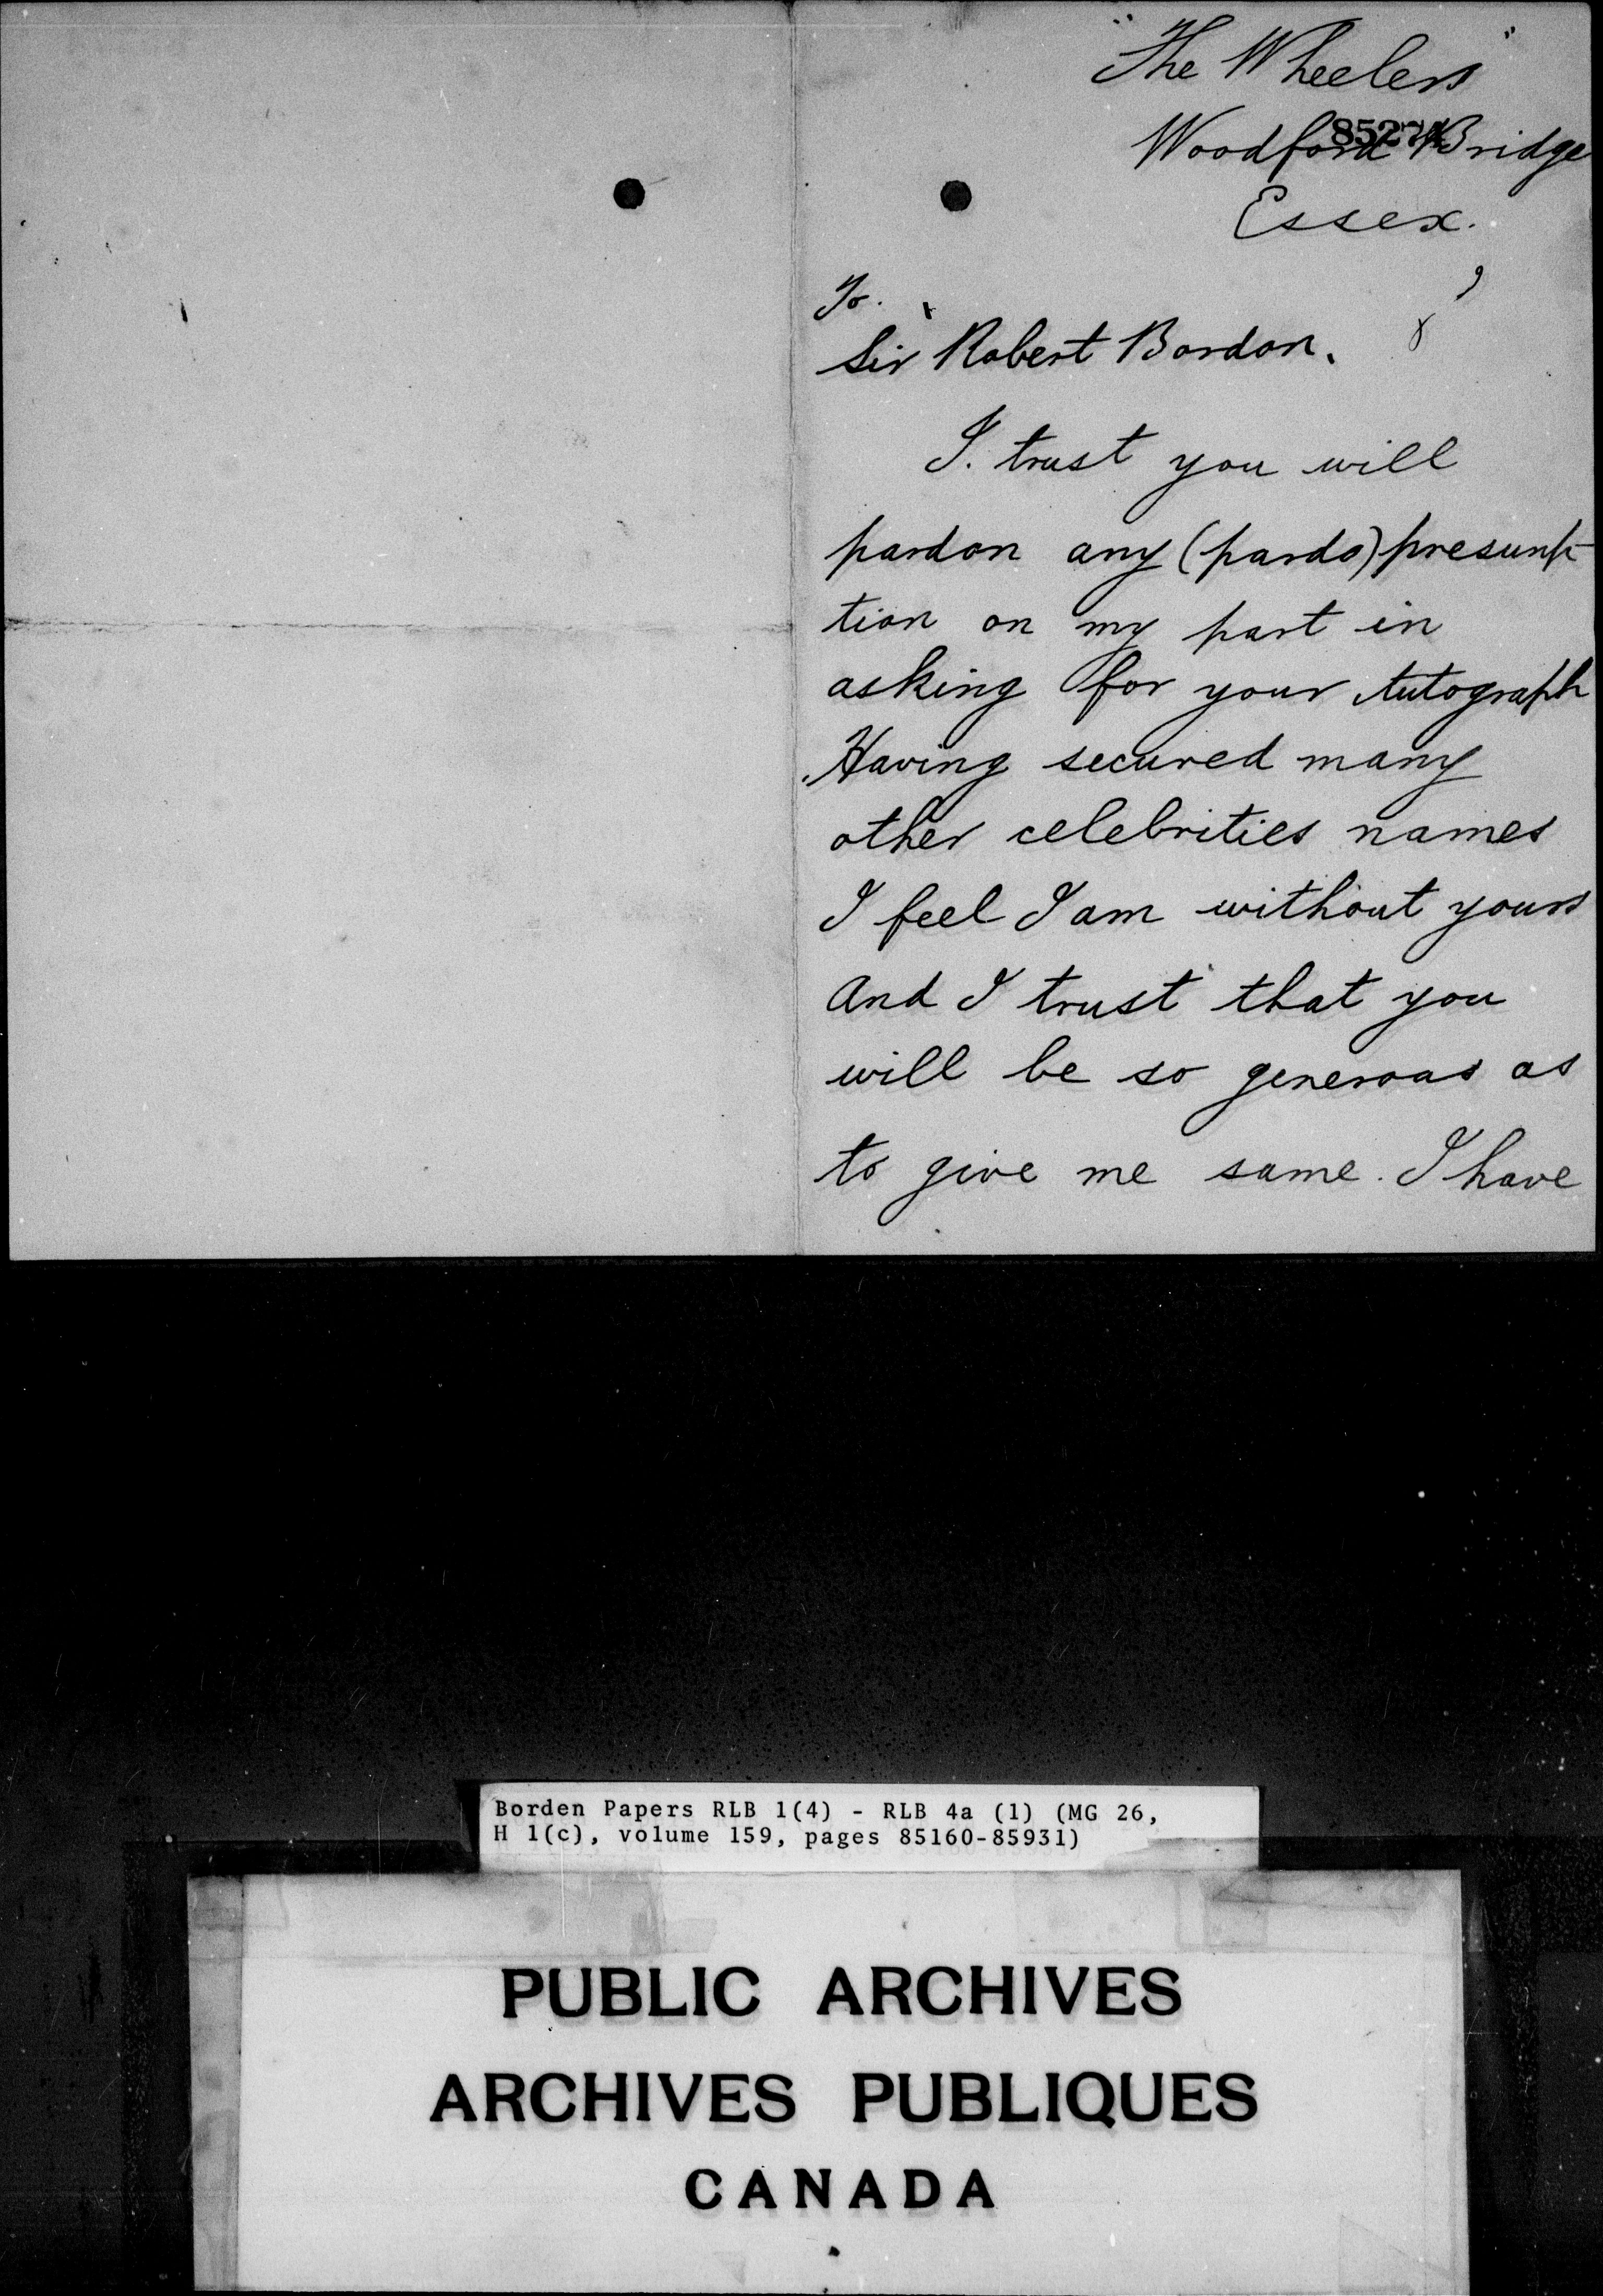 "The Wheelers"
Woodford Bridge
Essex.
To.
Sir Robert Bordon.
I. trust you will
pardon any (pardo) presump-
tion on my part in
asking for your Autograph
Having secured many
other celebrities names
I feel I am without yours
And I trust that you
will be so generous as
to give me same. I have
Borden Papers RLB 1(4) - RLB 4a (1) (MG 26,
H 1(c), volume 159, pages 85160-85931)
PUBLIC ARCHIVES
ARCHIVES PUBLIQUES
CANADA